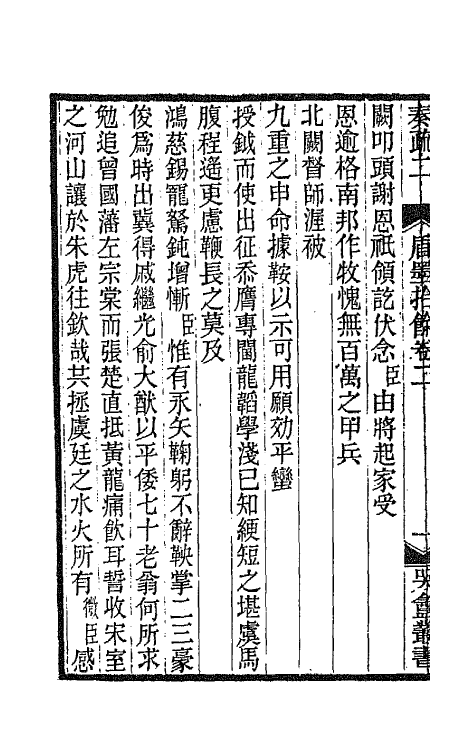 奏疏二
盾墨拾餘卷二
一
哭盦叢書
闕叩頭謝恩祇領訖伏念臣由將起家受
恩逾格南邦作牧愧無百萬之甲兵
北闕督師渥被
九重之申命據鞍以示可用願効平蠻
授鉞而使出征忝膺專閫龍韜學淺已知綆短之堪虞馬
腹程遙更慮鞭長之莫及
鴻慈錫寵駑鈍增慚臣惟有永矢鞠躬不辭鞅掌二三豪
俊爲時出冀得戚繼光俞大猷以平倭七十老翁何所求
勉追曾國藩左宗棠而張楚直抵黃龍痛飲耳誓收宋室
之河山讓於朱虎往欽哉共拯虞廷之水火所有微臣感